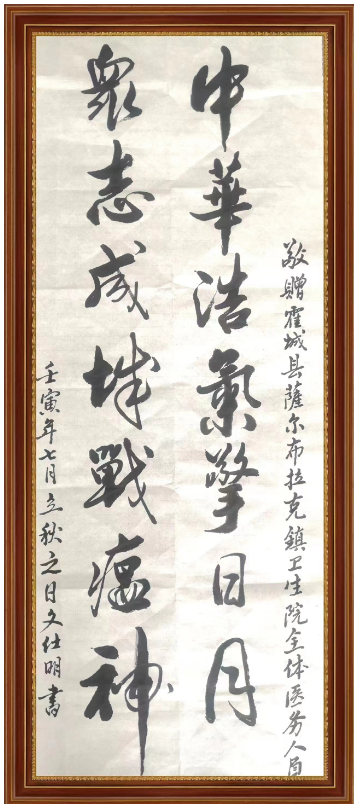 敬贈霍城县薩尔布拉克鎮卫生院全体医务人员
中華浩氣擎日月
眾志成城戰瘟神
壬寅年七月立秋之日文仕明書